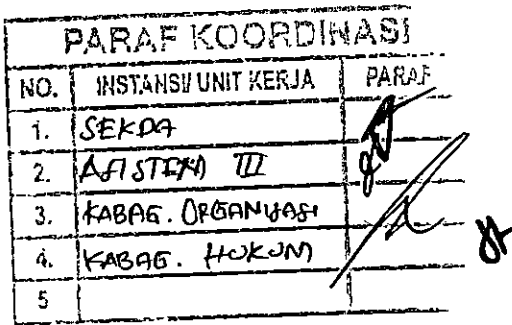 PARAF KOORDINASI
NO. INSTANSI/UNIT KERJA PARAF
1. SEKDA
2. ASISTEN III
3. KABAG. ORGANISASI
4. KABAG. HUKUM
5